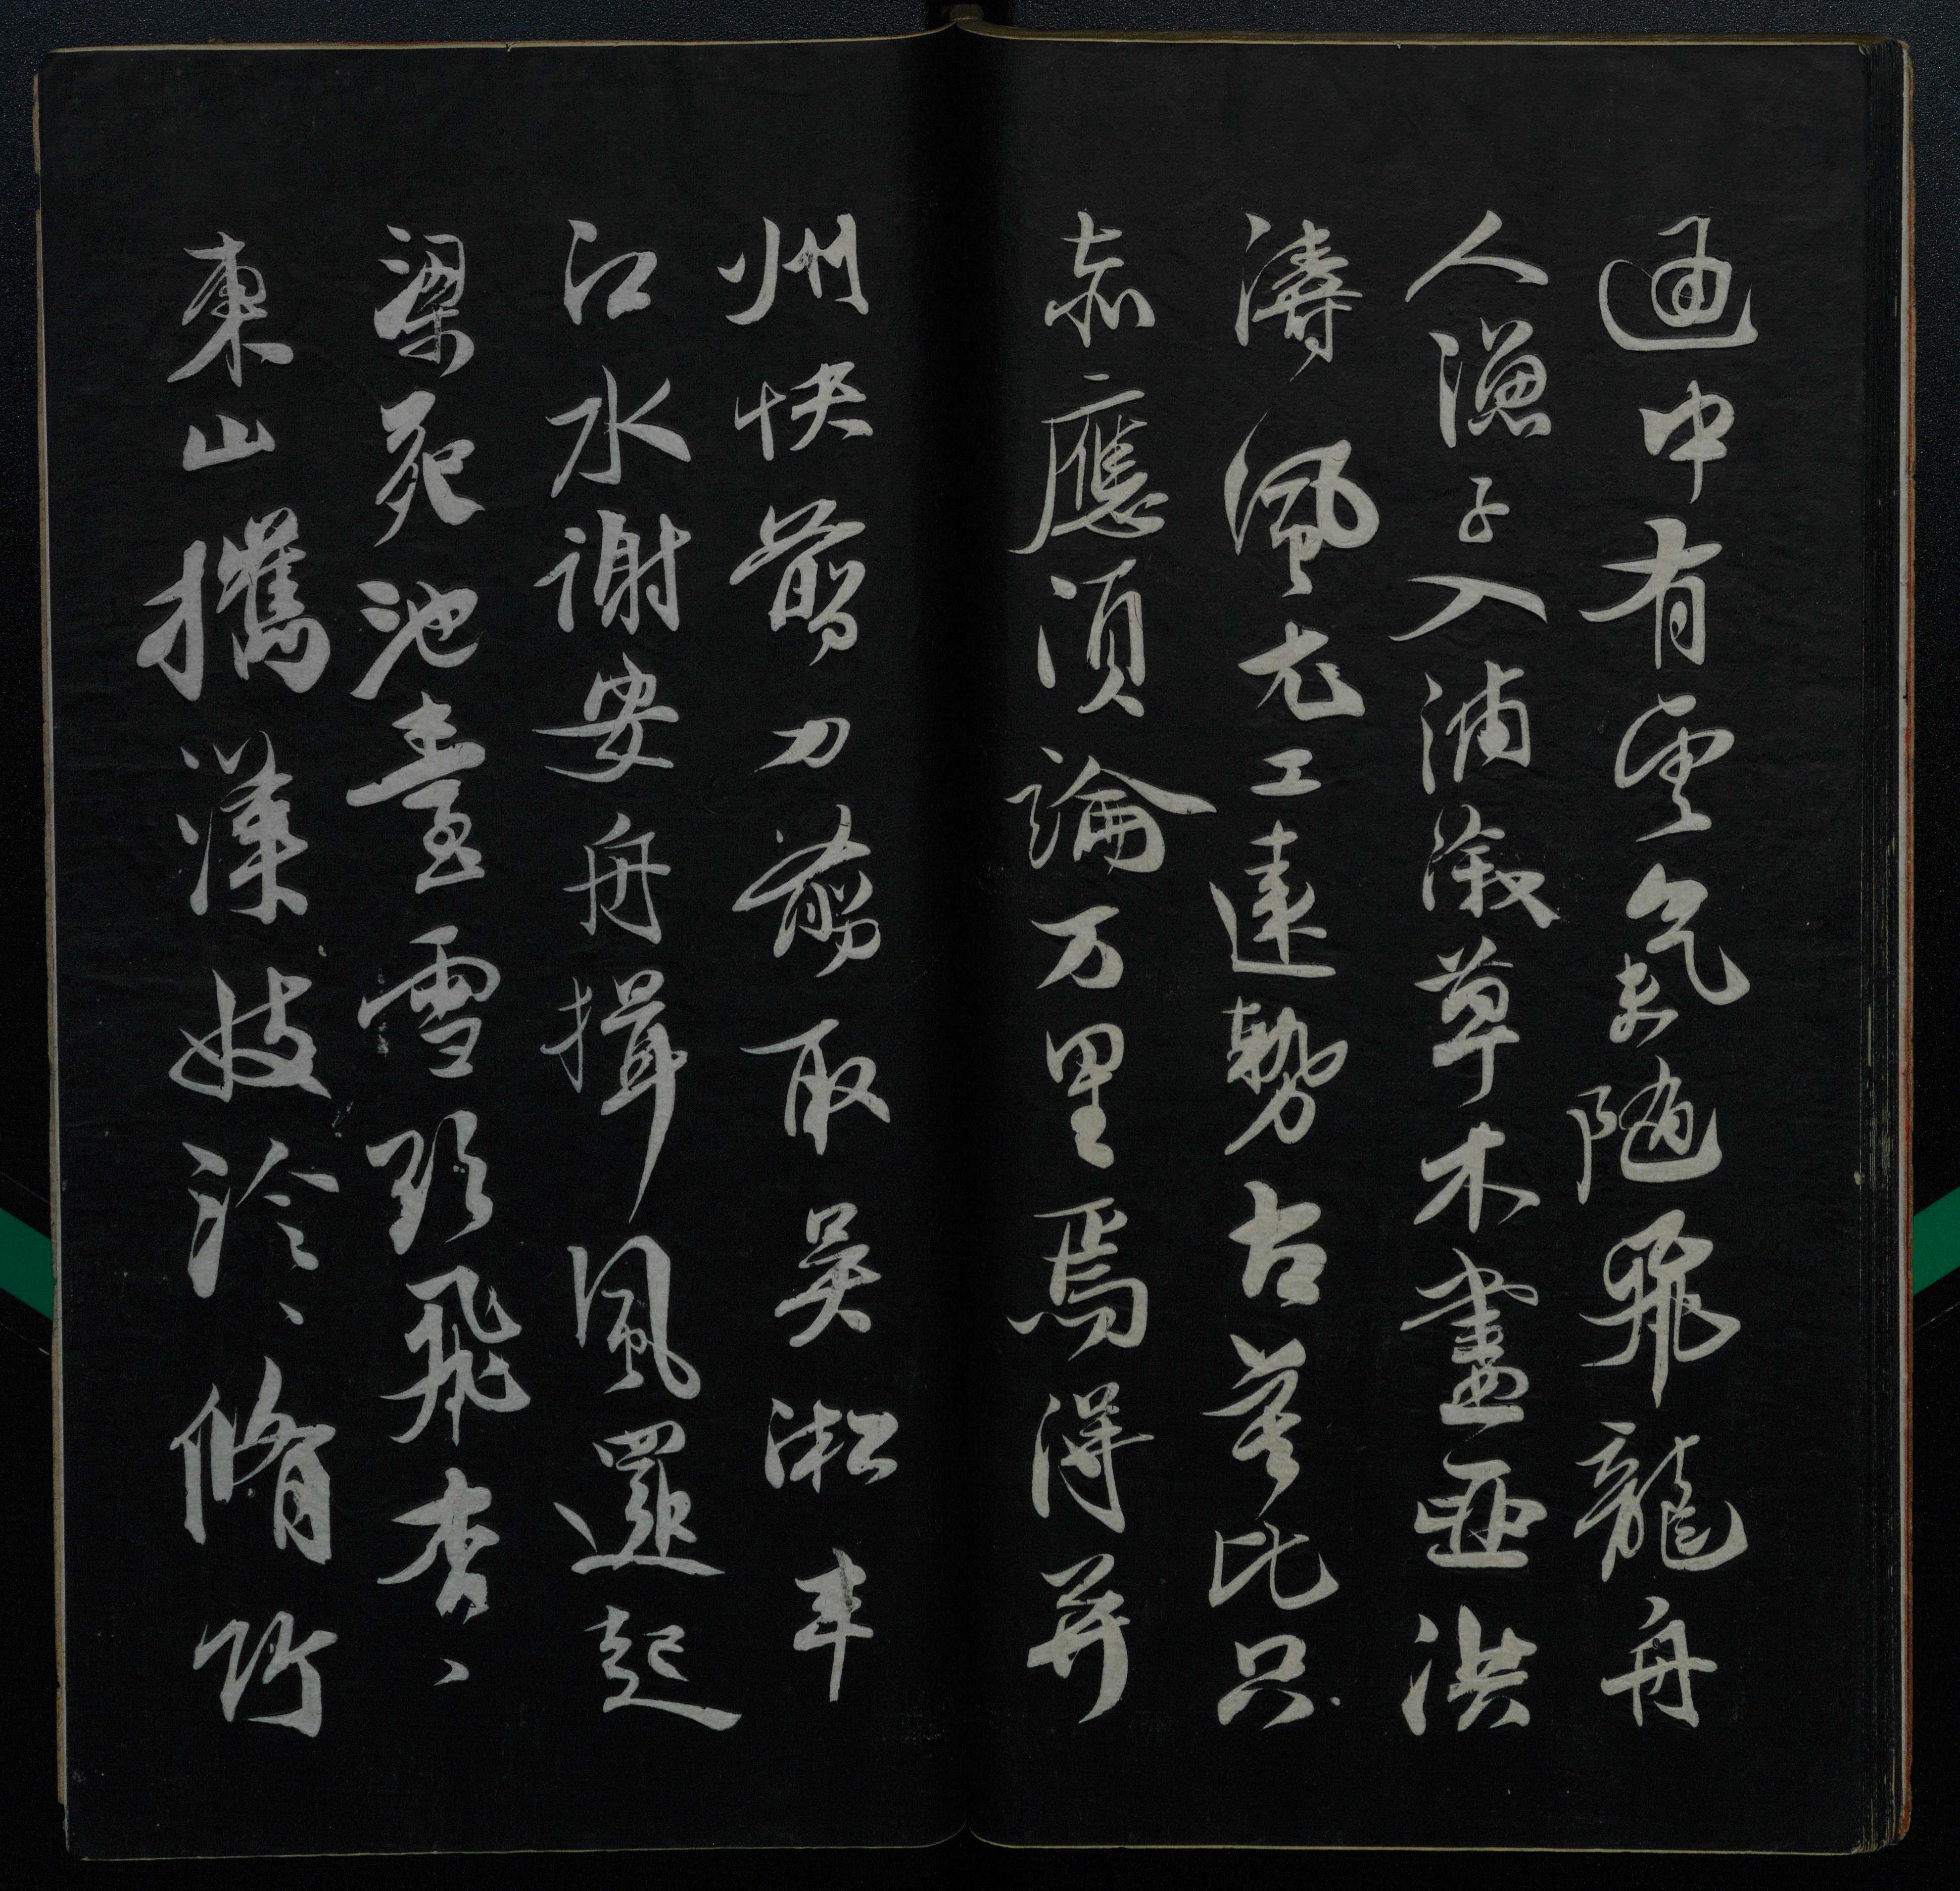 通中有雲氣随飛龍舟
人漁子入浦漵草木盡亞洪
濤風尤工遠勢古莫比只
赤應須論万里焉得并
州快剪刀剪取吴淞半
江水謝安舟楫風還起
梁苑池臺雪欲飛杳、
東山攜漢妓泠、脩竹